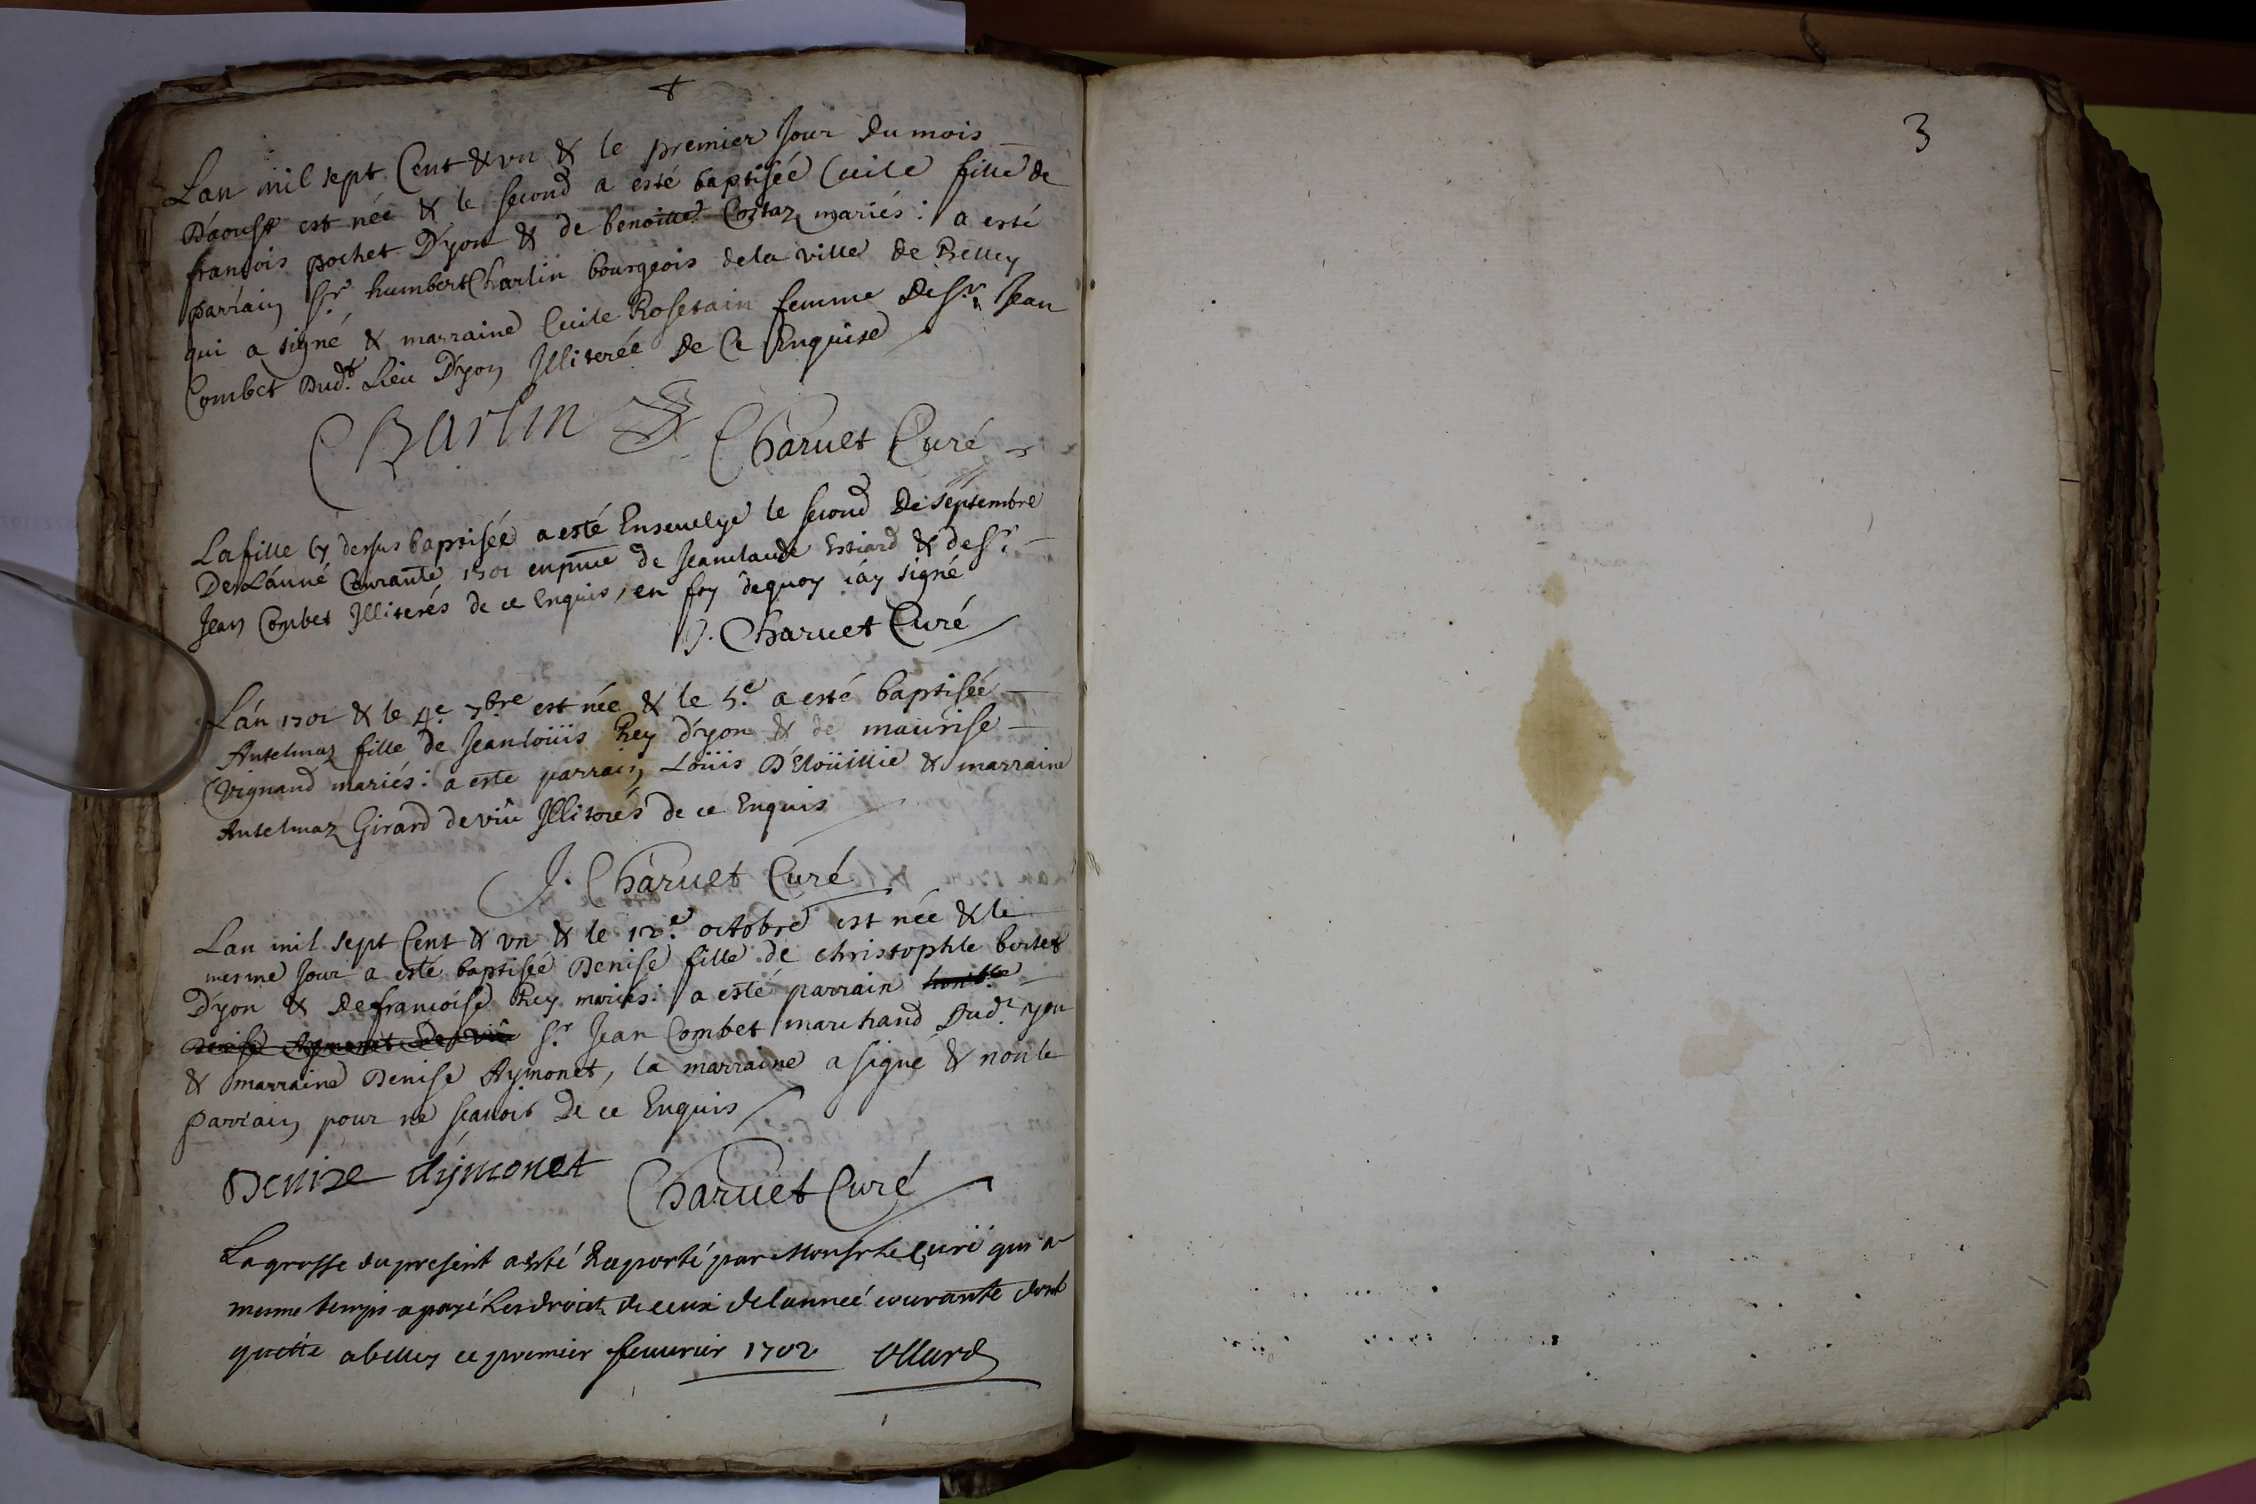 Lan mil sept Cent & vn & le premier Jour du mois
D'aoust est née & le second a esté baptisée Cecile fille de
francois pochet D'yon & de benoitte Costaz mariés: a esté
parrain Sr. humbert Charlin bourgeois de la ville de Belley
qui a signé & marraine Cecile Rosetain femme de Sr. Jean
Combet Dud.t Lieu D'yon Illiterée De Ce Enquise
Charlin Charuet Curé
La fille cy dessus baptisée a esté Enseuelye le second De septembre
De Lánné Courante 1701 en pnce de Jeanclaude Estiard & de Sr.
Jean Combet Illiterés de ce Enquis, en foy dequoy iáy signé
J. Charuet Curé
Lán 1701 & le 4e 7bre est née & le 5.e a esté baptisée
Antelmaz fille de Jean loüis Rey d'yon & de maurise
Vignand mariés: a este parrain Loüis D'Eloüillie & marraine
Antelmaz Girard de viû Illiterés de ce Enquis
J. Charuet Curé
Lan mil sept Cent & vn & le 12.e octobre est née & le
mesme Jour a esté baptisée Denise fille de christophle bertet
D'yon & de francoise Rey mariés: a esté parrain
Sr. Jean Combet marchand Dud.t yon
& marraine Denise Aymonet, la marraine a signé & non le
parrain pour ne scauoir De ce Enquis
Denize Aymonet Charuet Curé
La grosse du present a esté Raporté par Monsr le Curé qui a
mesme temps a payé Les droict de ceux de lanneé courante dont
quitte a belley ce premier feuurier 1702 Ollard
3